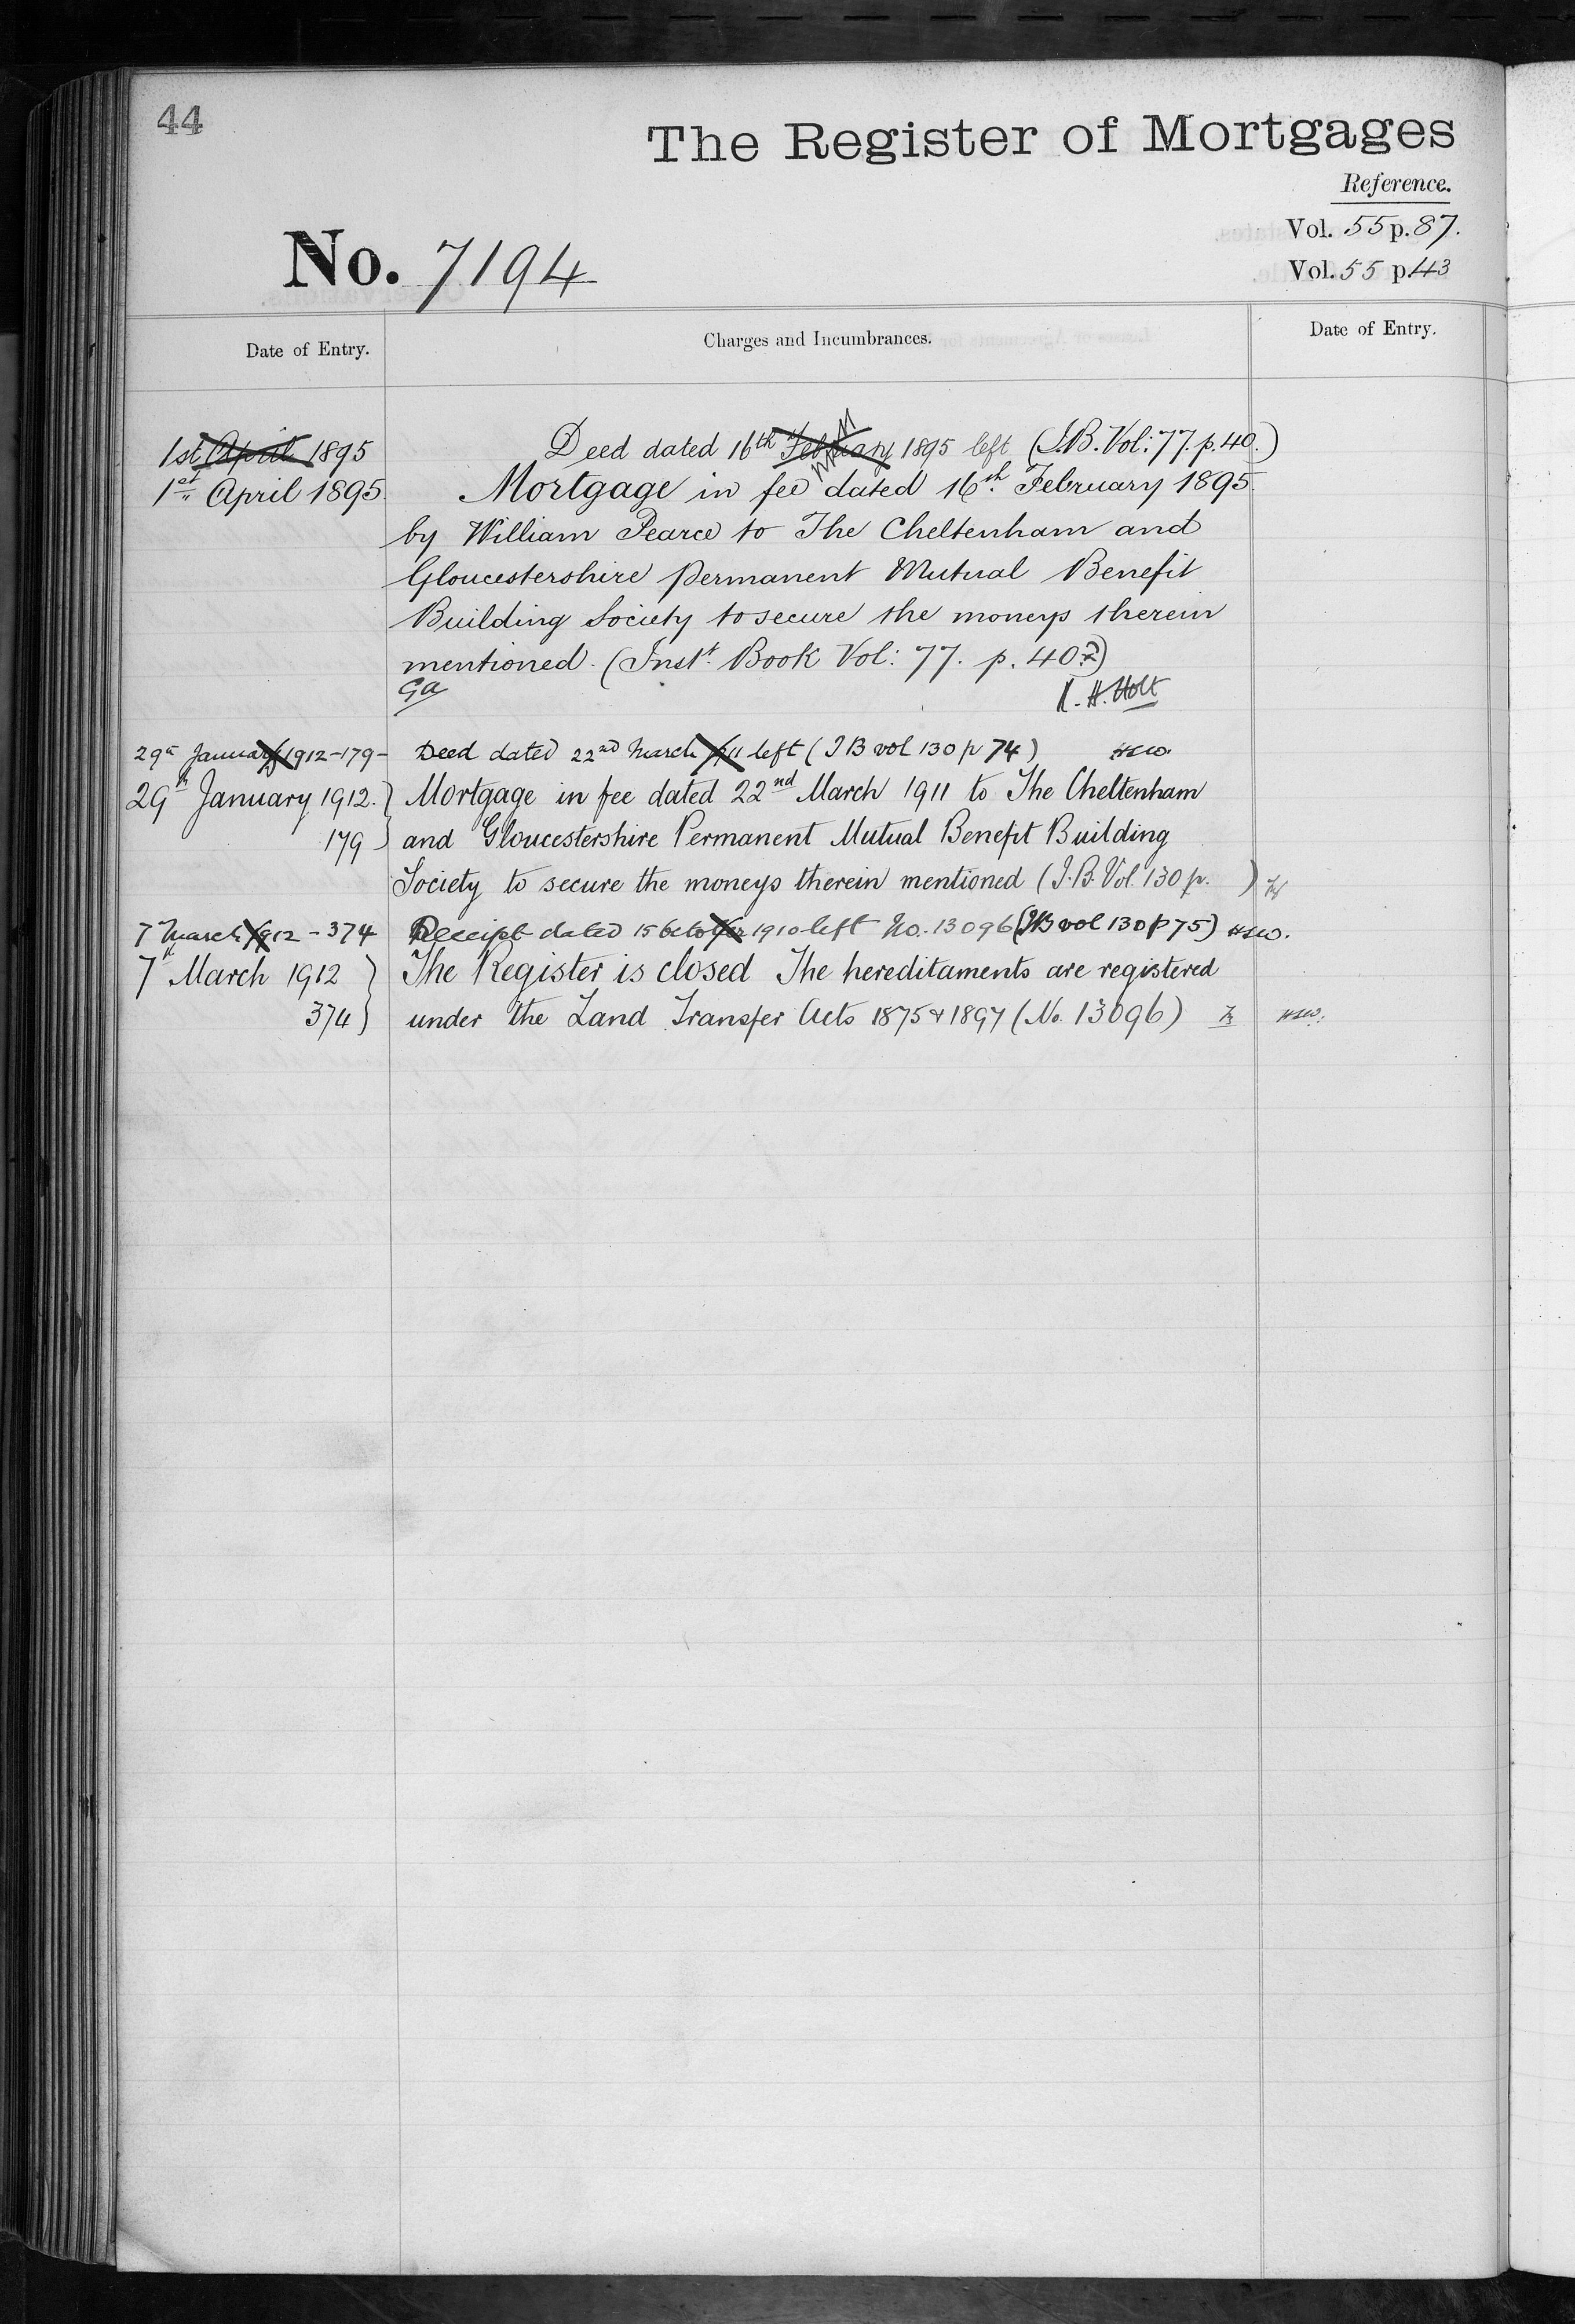 44
The Register of Mortgages
Reference.
Vol. 55 p. 87.
No. 7194
Vol. 55 p. 43
Date of Entry.
Charges and Incumbrances.
Date of Entry.
1st April 1895
Deed dated 16th February 1895 left (I.B. Vol: 77. p. 40.)
1st April 1895.
Mortgage in fee dated 16th February 1895.
by William Pearce to The Cheltenham and
Gloucestershire Permanent Mutual Benefit
Building Society to secure the moneys therein
mentioned. (Inst. Book Vol: 77. p. 40.)
Ga
H. Holt
29th January 1912-179-
Deed dated 22nd March 1911 left (I B vol 130 p 74) HSW.
29th January 1912.
Mortgage in fee dated 22nd March 1911 to The Cheltenham
179
and Gloucestershire Permanent Mutual Benefit Building
Society to secure the moneys therein mentioned (I.B. Vol. 130 p. )
7 March 1912 - 374
Receipt dated 15 October 1910 left No. 13096 (IB vol 130 p 75) HSW.
7th March 1912
The Register is closed The hereditaments are registered
374
under the Land Transfer Acts 1875 & 1897 (No. 13096) HSW.